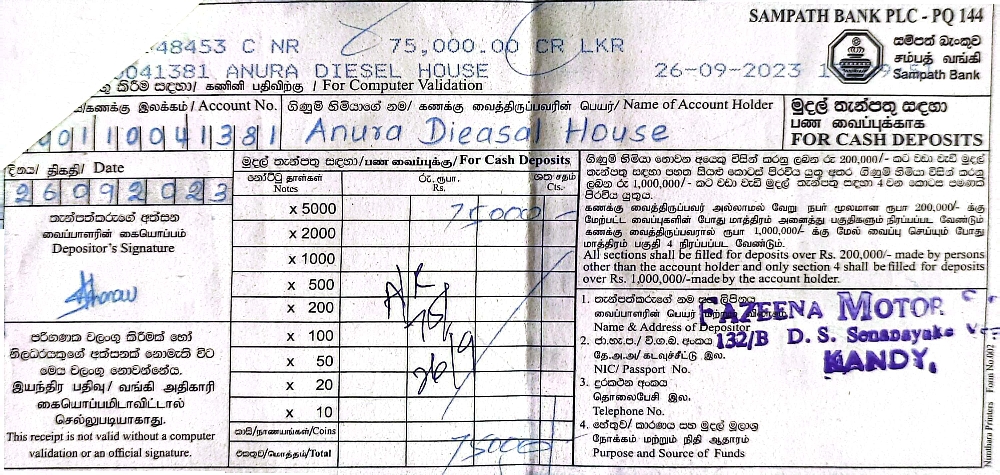 SAMPATH BANK PLC - PQ 144
48453 C NR 75,000.00 CR LKR
0041381 ANURA DIESEL HOUSE 26-09-2023
සම්පත් බැංකුව
சம்பத் வங்கி
Sampath Bank
කිරීම සඳහා/ கணினி பதிவிற்கு / For Computer Validation
கணக்கு இலக்கம் / Account No. ගිණුම් හිමියාගේ නම/ கணக்கு வைத்திருப்பவரின் பெயர்/ Name of Account Holder
0110041381 Anura Dieasal House
මුදල් තැන්පතු සඳහා
பண வைப்புக்காக
FOR CASH DEPOSITS
දිනය/ திகதி/ Date
26092023
තැන්පත්කරුගේ අත්සන
வைப்பாளரின் கையொப்பம்
Depositor's Signature
පරිගණක වලංගු කිරීමක් හෝ
නිලධරයකුගේ අත්සනක් නොමැති විට
මෙය වලංගු නොවන්නේය.
இயந்திர பதிவு/ வங்கி அதிகாரி
கையொப்பமிடாவிட்டால்
செல்லுபடியாகாது.
This receipt is not valid without a computer
validation or an official signature.
මුදල් තැන්පතු සඳහා/பண வைப்புக்கு/For Cash Deposits
නෝට්ටු தாள்கள் රු. ரூபா. ශත சதம்
Notes Rs. Cts.
x 5000 75000 -
x 2000
x 1000
x 500
x 200
x 100
x 50
x 20
x 10
කාසි/நாணயங்கள்/Coins
එකතුව/மொத்தம்/Total 75000
26/9
ගිණුම් හිමියා නොවන අයෙකු විසින් කරනු ලබන රු 200,000/- කට වඩා වැඩි මුදල්
තැන්පතු සඳහා පහත සියළු කොටස් පිරවිය යුතු අතර ගිණුම් හිමියා විසින් කරනු
ලබන රු 1,000,000/- කට වඩා වැඩි මුදල් තැන්පතු සඳහා 4 වන කොටස පමණක්
පිරවිය යුතුය.
கணக்கு வைத்திருப்பவர் அல்லாமல் வேறு நபர் மூலமான ரூபா 200,000/- க்கு
மேற்பட்ட வைப்புகளின் போது மாத்திரம் அனைத்து பகுதிகளும் நிரப்பபட வேண்டும்
கணக்கு வைத்திருப்பவரால் ரூபா 1,000,000/- க்கு மேல் வைப்பு செய்யும் போது
மாத்திரம் பகுதி 4 நிரப்பபட வேண்டும்.
All sections shall be filled for deposits over Rs. 200,000/- made by persons
other than the account holder and only section 4 shall be filled for deposits
over Rs. 1,000,000/-made by the account holder.
1. තැන්පත්කරුගේ නම සහ ලිපිනය
வைப்பாளரின் பெயர் மற்றும் விலாசம்
Name & Address of Depositor
FAZEENA MOTOR
132/B D. S. Senanayake
KANDY.
2. ජා.හැ.ප. / වි.ග.බ. අංකය
தே.அ.அ/ கடவுச்சீட்டு இல.
NIC/ Passport No.
3. දුරකථන අංකය
தொலைபேசி இல.
Telephone No.
4. හේතුව/ කාරණය සහ මුදල් මූලාශ්‍ර
நோக்கம் மற்றும் நிதி ஆதாரம்
Purpose and Source of Funds
Ninthara Printers Form No.002